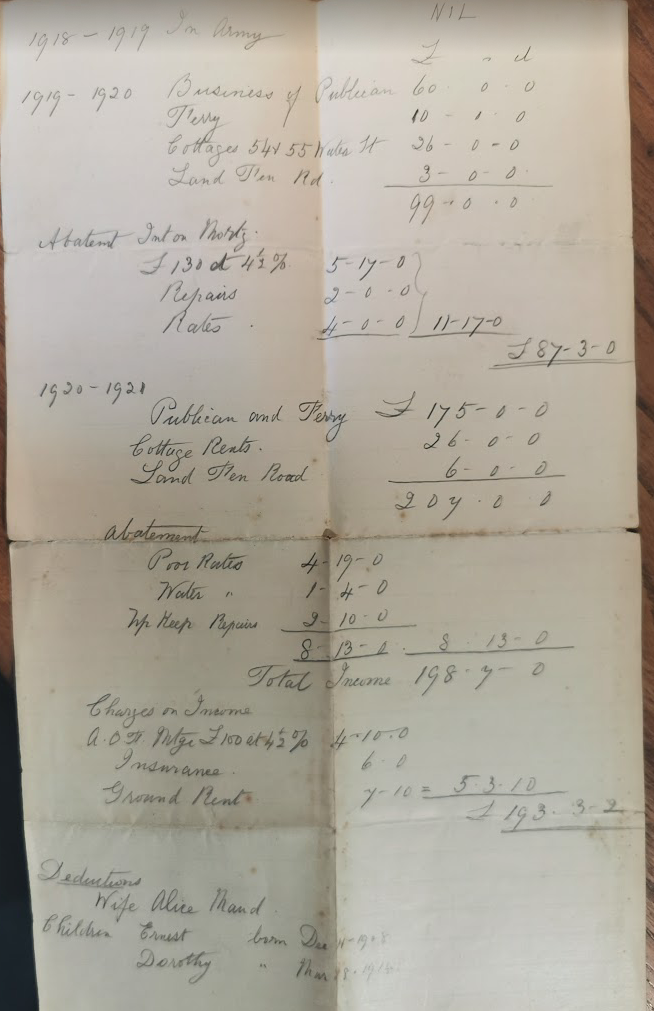 NIL
1918 - 1919 In Army
£ s d
1919 - 1920 Business of Publican 60 - 0 - 0
Ferry 10 - 0 - 0
Cottages 54 & 55 Water St 26 - 0 - 0
Land Fen Rd. 3 - 0 - 0
99 - 0 - 0
Abatemt Int on Mortg.
£130 at 4½% 5 - 17 - 0
Repairs 2 - 0 - 0
Rates 4 - 0 - 0 11 - 17 - 0
£87 - 3 - 0
1920 - 1921
Publican and Ferry £175 - 0 - 0
Cottage Rents. 26 - 0 - 0
Land Fen Road 6 - 0 - 0
207 - 0 0
Abatement
Poor Rates 4 - 19 - 0
Water " 1 - 4 - 0
Up Keep Repairs 2 - 10 - 0
8 - 13 - 0 . 8 . 13 - 0
Total Income 198 - 7 - 0
Charges on Income
A.O.F. Mtge £100 at 4½% 4 - 10 . 0
Insurance. 6 . 0
Ground Rent. 7 - 10 = 5 . 3 . 10
£193 . 3 - 2
Deductions
Wife Alice Maud.
Children Ernest born Dec
Dorothy " Mar